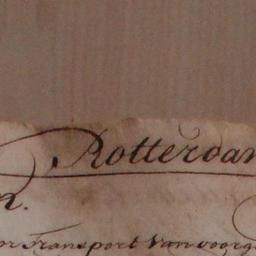 Rotterdam
Transport Van voorg